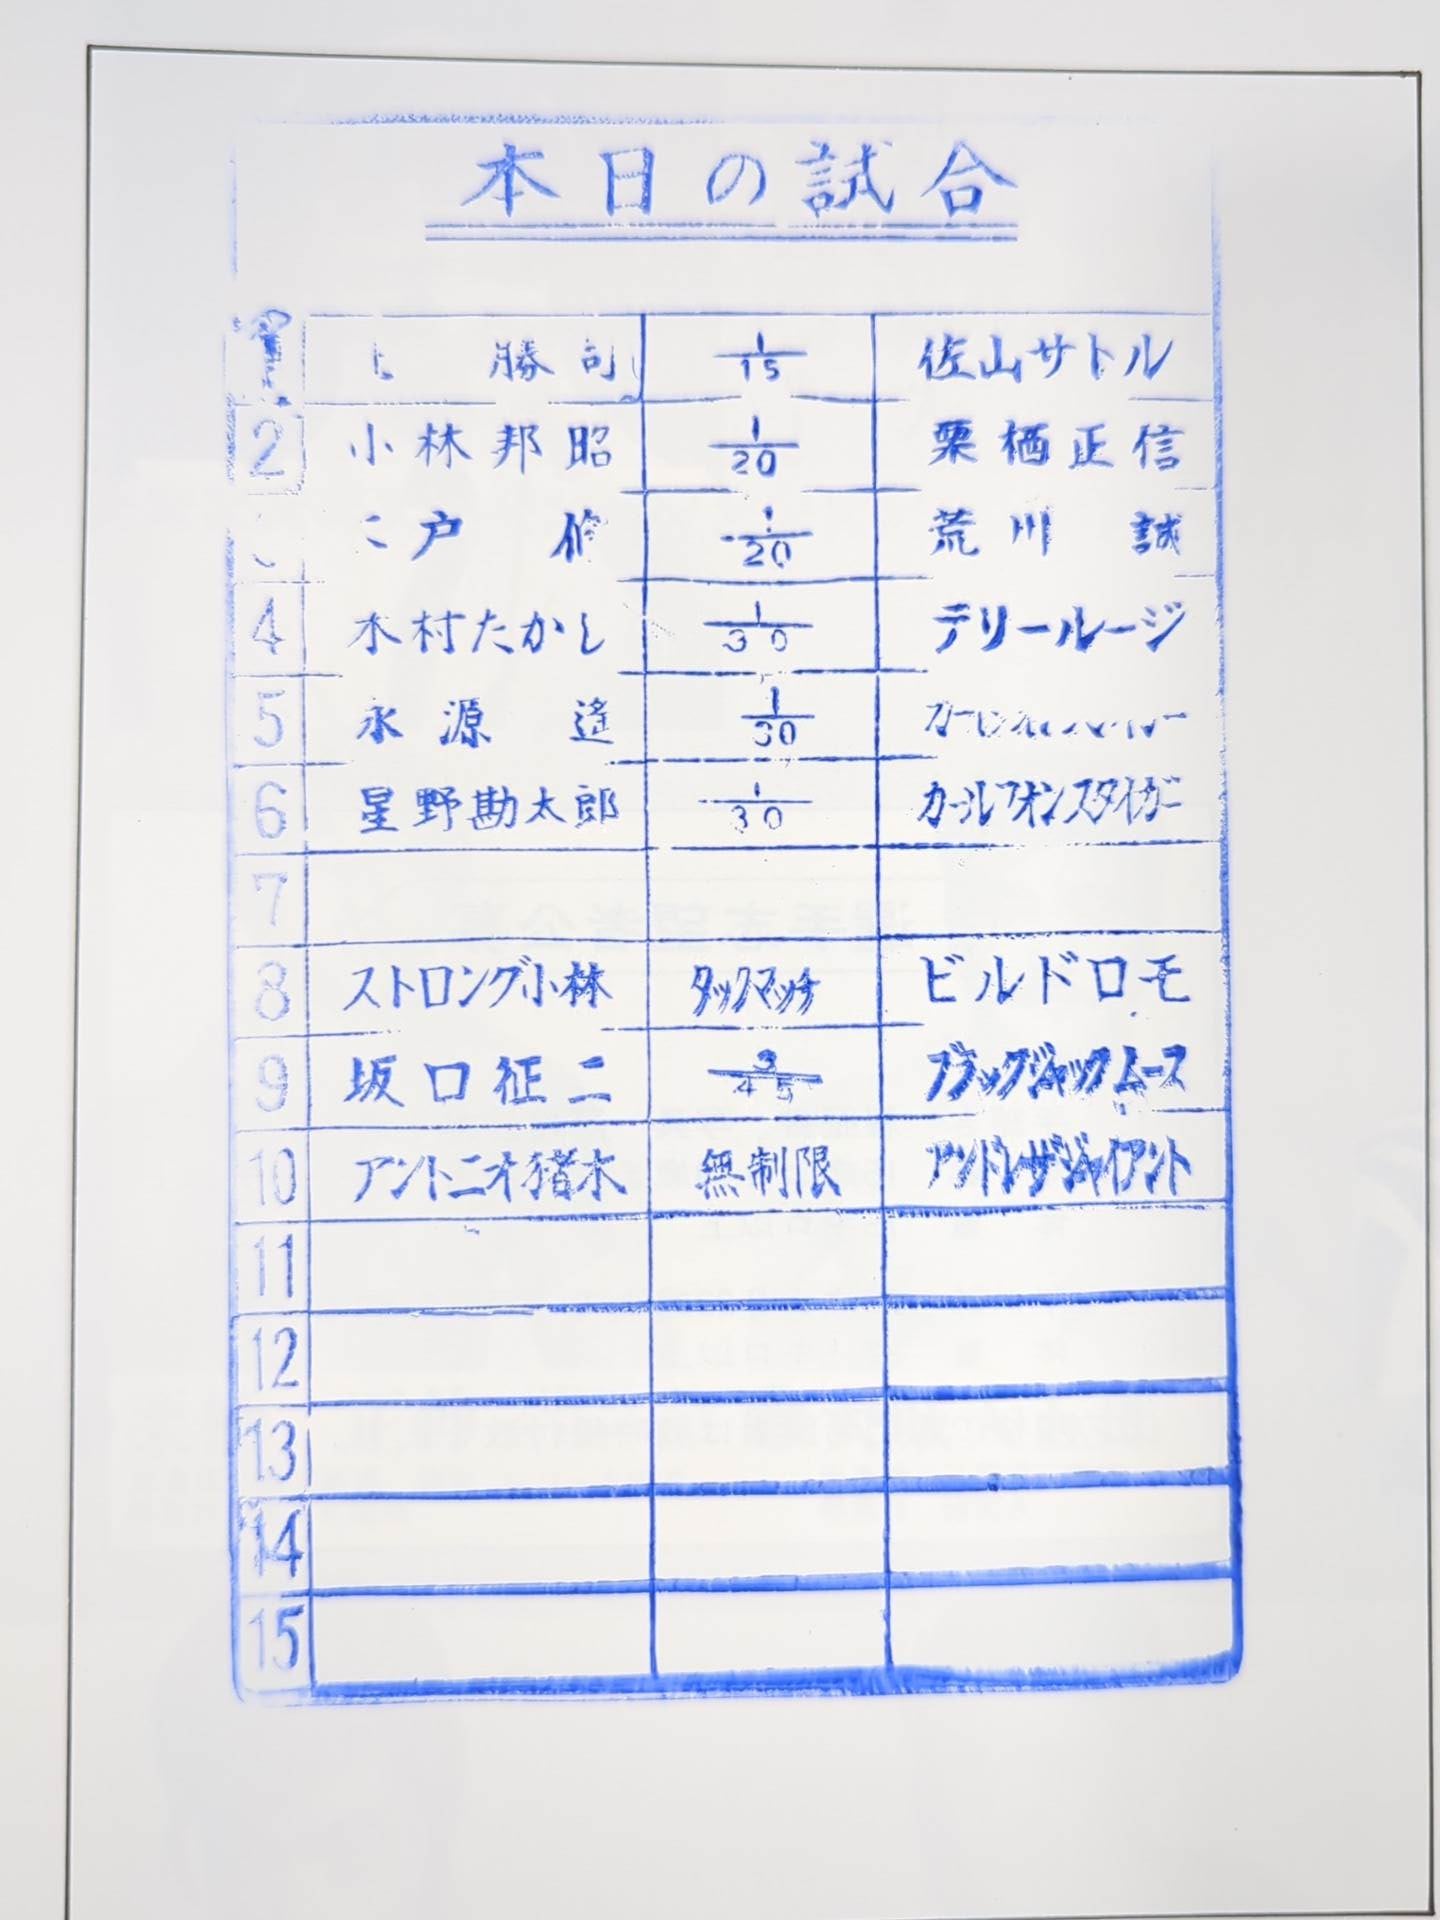 本日の試合
1 勝司 1/15 佐山サトル
2 小林邦昭 1/20 栗栖正信
戸 修 1/20 荒川 誠
4 木村たかし 1/30 テリールージ
5 永源 遙 1/30
6 星野勘太郎 1/30 カールフオンスタイガー
7
8 ストロング小林 タッグマッチ ビルドロモ
9 坂口征二 3/45 ブラックジャックムース
10 アントニオ猪木 無制限 アンドレザジャイアント
11
12
13
14
15